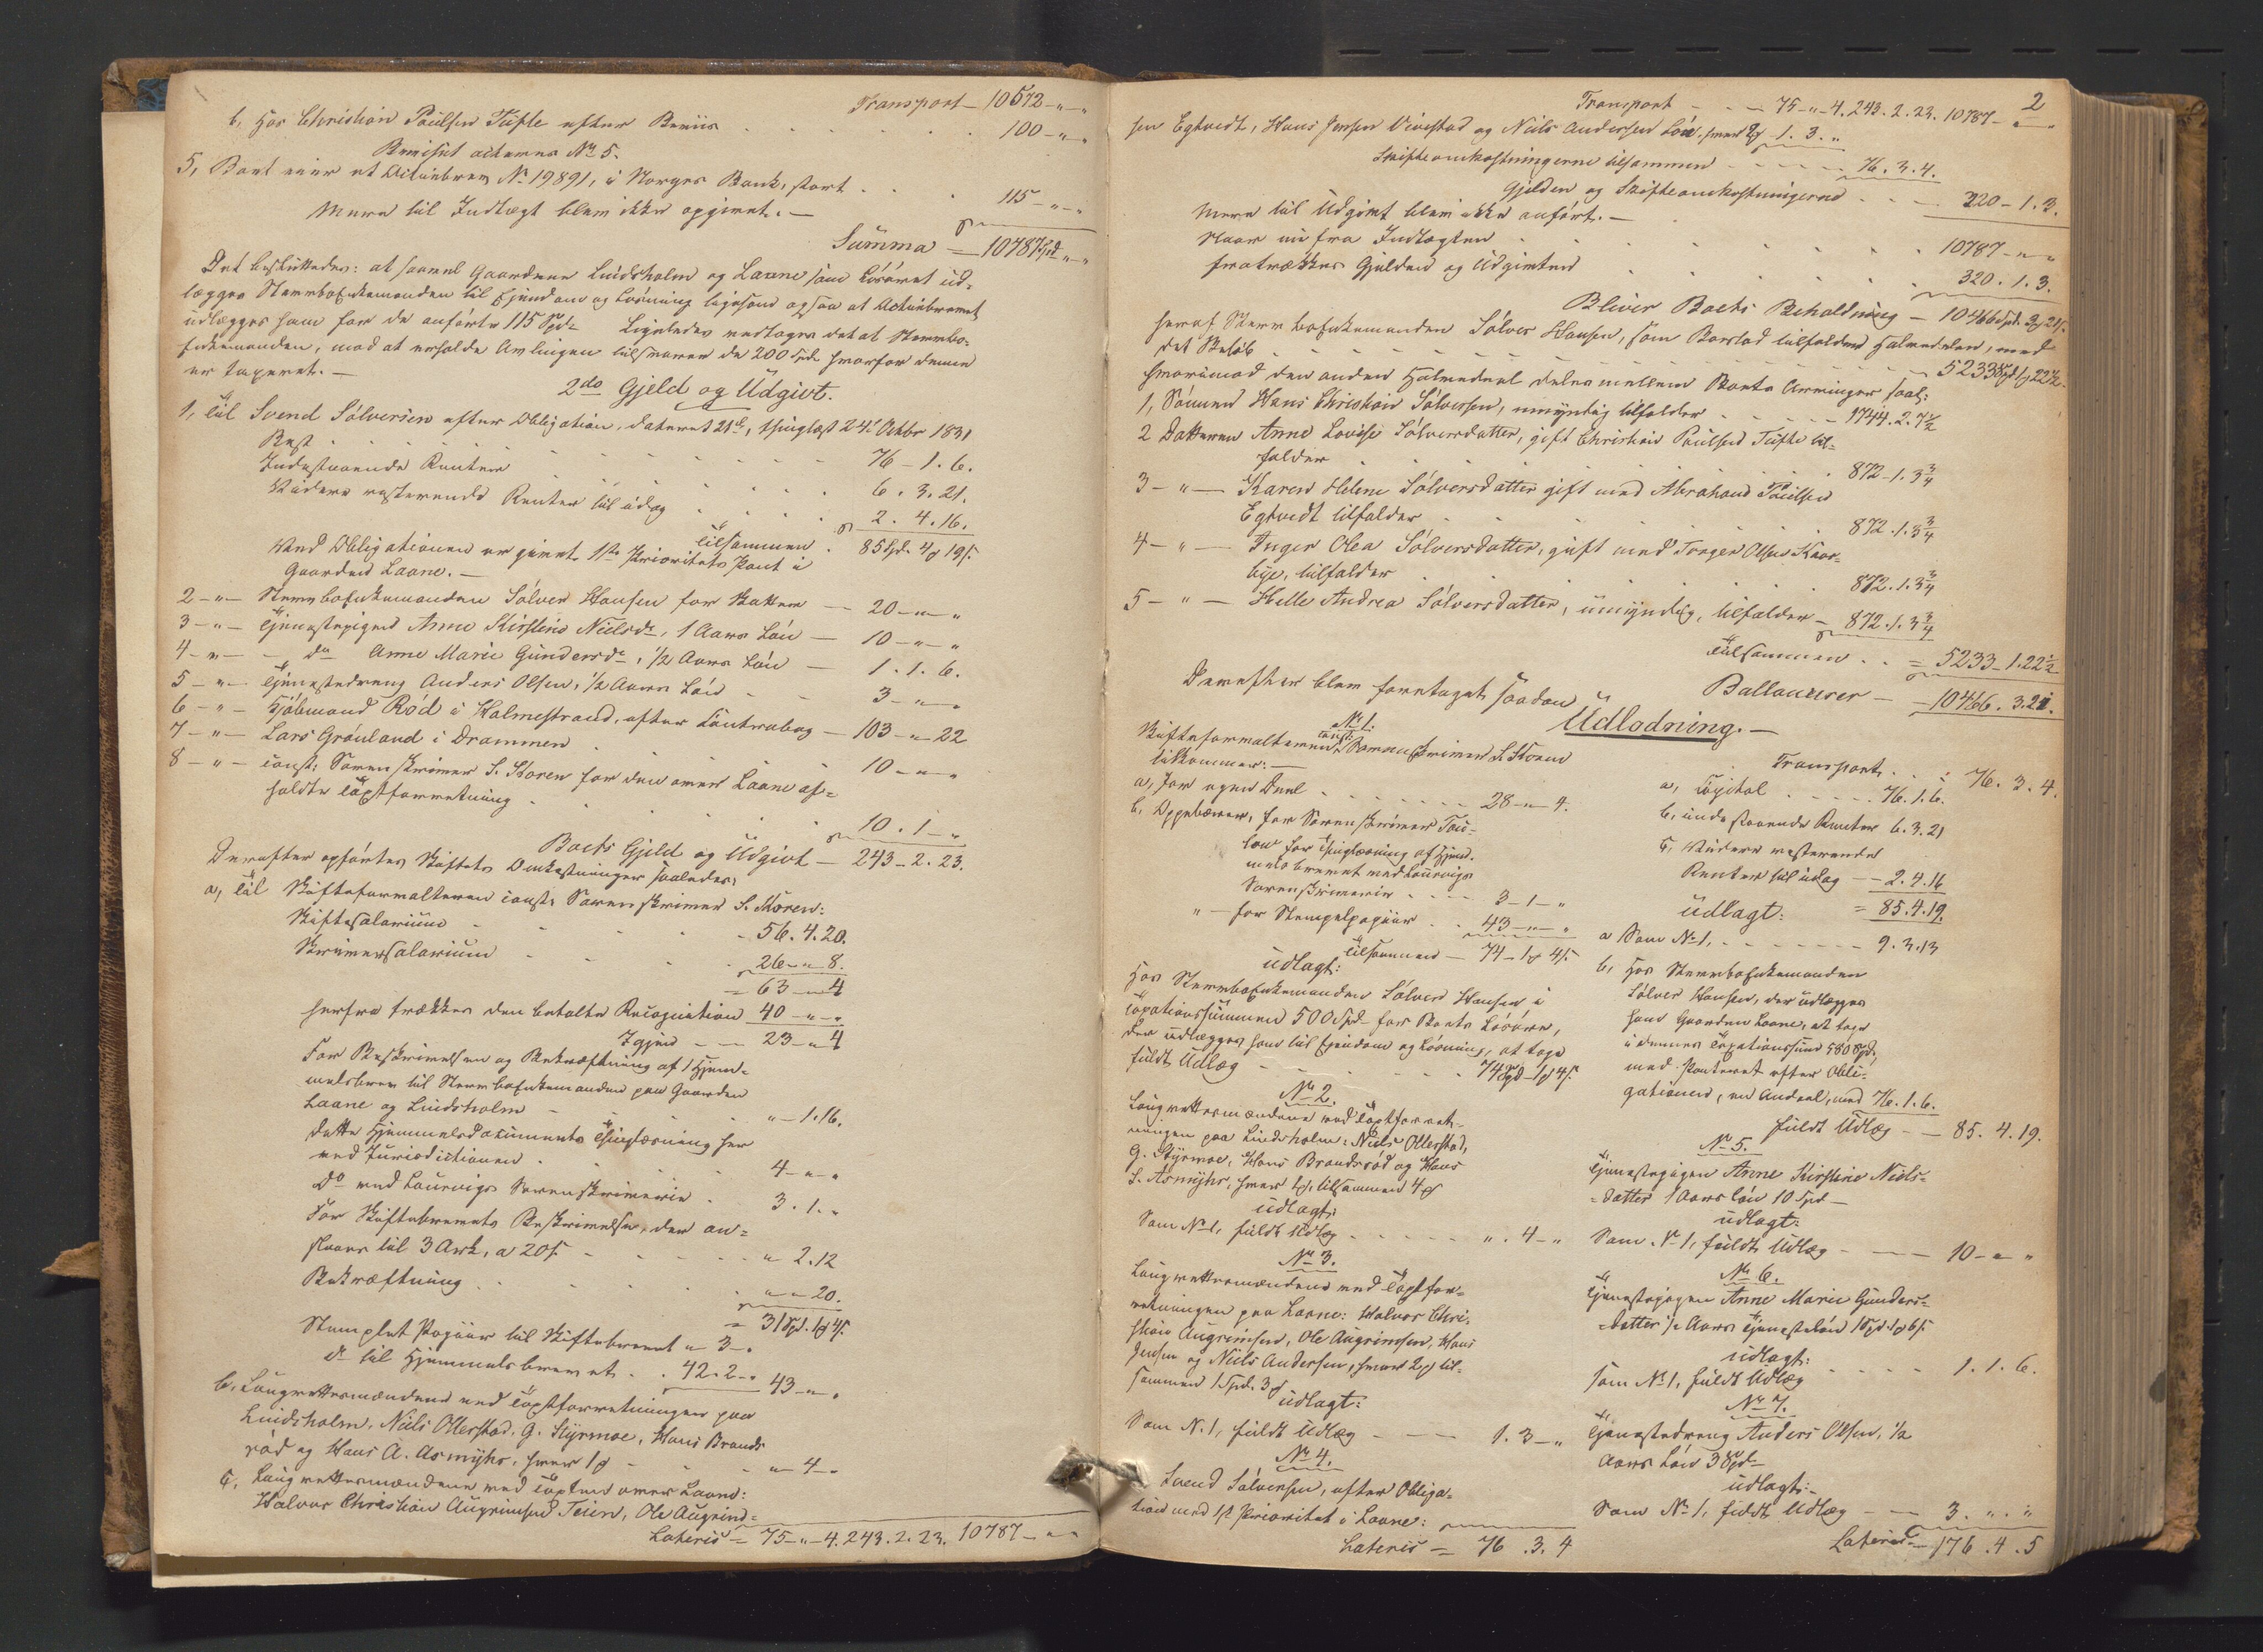 Transport — 10572 - " - "
b, Hos Christian Paulsen Tufte efter Beviis . . . . 100 - " - "
Beviset acteres No 5.
5, Boet eier et Actiebrev No 19891, i Norges Bank, stort . . . 115 - " - "
Mere til Indtægt blev ikke opgivet. —
Summa = 10787 Spd " - "
Det besluttedes: at saavel Gaardene Lindsholm og Laane som Løsøret ud-
lægges Stervbofuldmanden til Eiendom og Løsning ligesom ogsaa at Actiebrevet
udlægges ham for de anførte 115 Spd. Ligeledes vedtoges det at Stervbo-
er taxeret. —
2do Gjeld og Udgivt.
1, til Svend Sølversen efter Obligation, dateret 21de, thinglæst 24de Octbr 1831
Rest . . . 76 - 1. 6.
Indestaaende Renter . . . 6. 3. 21.
Videre resterende Renter til idag . . . 2. 4. 16.
tilsammen . 85 Spd. 4 19 s.
Ved Obligationen er givet 1ste Prioritets Pant i
Gaarden Laane. —
2 - " - Sølver Hansen for Skatter — 20 - " - "
3 - " - Tjenestepigen Anne Kirstine Nielsdr, 1 Aars Løn — 10 - " - "
4 - " - do Anne Marie Gundersdr, 1/2 Aars Løn — 1. 1. 6.
5 - " - Tjenestedreng Anders Olsen, 1/2 Aars Løn - - 3 - " - "
6 - " - Kjøbmand Rød i Holmestrand, efter Contrabog — 103 - " - 22
7 - " - Lars Grønland i Drammen . . . 10 - " - "
8 - " - const: Sorenskriver S. Storen for den over Laane af-
holdte Taxtforretning . . . 10. 1 - "
Boets Gjeld og Udgivt — 243 - 2. 23.
Derefter opførtes Skiftets Omkostninger saaledes:
a, til Skifteforvalteren const: Sorenskriver S. Storen:
Skiftesalarium - - - 56. 4. 20.
Skriversalarium - - - 26 - " 8.
= 63 - " - 4
herfra trækkes den betalte Recognition 40 - " - "
Igjen — 23 - " 4
For Beskrivelsen og Bekræftning af 1 Hjem-
melsbrev til Stervbofuldmanden paa Gaarden
Laane og Lindsholm - - - " - 1. 16.
dette Hjemmelsdocuments Thinglæsning her
ved Jurisdictionen . . . 4 - " - "
Do ved Laurvigs Sorenskriverie . 3. 1. "
For Skiftebrevets Beskrivelse, der an-
slaaes til 3 Ark, a 20 s. - - - " 2. 12
Bekræftning . . . " - " 20.
= 31 Spd. 1 4 s.
Stemplet Papiir til Skiftebrevet " 3 - "
do til Hjemmelsbrevet . . 42. 2 - " 43 - " - "
b, Laugrettesmændene ved Taxtforretningen paa
Lindsholm, Niels Ollerstad, G. Styrmoe, Hans Brands
rød og Hans A. Asmyhr, hver 1 - - - " - 4 - "
c, Laugrettesmændene ved Taxten over Laane:
Halvor Christian Augrimsen Teien, Ole Augrim-
Lateris = 75 - " - 4. 243. 2. 23. 10787 - " - "
2
Transport - - - 75 - " - 4. 243. 2. 23. 10787 - " - "
sen Egtvedt, Hans Jensen Vivestad og Niels Andersen Løv. hver 2 - 1. 3. "
Skifteomkostningerne tilsammen - - - 76. 3. 4.
Gjelden og Skifteomkostningerne - - - 320 - 1. 3.
Mere til Udgivt blev ikke anført. —
Naar nu fra Indtægten . . . 10787 - " - "
fratrækkes Gjelden og Udgivten . . . 320. 1. 3.
Bliver Boets Beholdning — 10466 Spd. 3 21 s.
heraf Stervbofuldmanden Sølver Hansen, som Boslod tilfalder Halvdelen, med
det Beløb - - - 5233 Spd 1 22 1/2
hvorimod den anden Halvdeel deles mellem Boets Arvinger saal:
1, Sønnen Hans Christian Sølversen, umyndig tilfalder - - - 1744. 2. 7 1/2
2 Datteren Anne Lovise Sølversdatter, gift Christian Paulsen Tufte til-
falder . . . 872 - 1. 3 3/4
3 - " - Karen Helene Sølversdatter gift med Abraham Paulsen
Egtvedt tilfalder . . . 872. 1. 3 3/4
4 - " - Inger Olea Sølversdatter, gift med Torger Olsen Skor-
bye, tilfalder . . . 872. 1. 3 3/4
5 - " - Helle Andrea Sølversdatter, umyndig, tilfalder — 872. 1. 3 3/4
Tilsammen . . = 5233 - 1. 22 1/2
Ballancerer — 10466. 3. 21.
Derefter blev foretaget saadan
Udlodning. —
No 1.
Skifteforvalteren const: Sorenskriver S. Storen
tilkommer: —
a, for egen Deel - - - 28 - " 4.
b, Oppebærer, for Sorenskriver Tau-
low for Thinglæsning af Hjem-
melsbrevet ved Laurvigs
Sorenskriverie - - - 3 - 1 - "
" - for Stempelpapiir . . 43 - " - "
tilsammen — 74 - 1 4 s.
udlagt:
Hos Stervbofuldmanden Sølver Hansen i
Taxationssummen 500 Spd for Boets Løsøre,
der udlægges ham til Eiendom og Løsning, at tage
fuldt Udlæg - - - 74 Spd - 1 4 s.
No 2.
Laugrettesmændene ved Taxtforret-
ningen paa Lindsholm: Niels Ollerstad,
G. Styrmoe, Hans Brandsrød og Hans
S. Asmyhr, hver 1, tilsammen 4
udlagt:
Som No 1, fuldt Udlæg - - - ". 4 - "
No 3.
Laugrettesmændene ved Taxtfor-
retningen paa Laane: Halvor Chri-
stian Augrimsen, Ole Augrimsen, Hans
Jensen og Niels Andersen, hver 2 til-
sammen 1 Spd. 3
udlagt:
Som No 1, fuldt Udlæg - - - 1. 3 - "
No 4.
Svend Sølversen, efter Obliga-
tion med 1st Prioritet i Laane:
Lateris = 76. 3. 4
Transport . . . 76. 3. 4.
a, Capital - - - 76. 1. 6.
b, indestaaende Renter 6. 3. 21
c, Videre resterende
Renter til idag - - 2. 4. 16
udlagt: = 85. 4. 19.
a Som No 1, - - - 9. 3. 13
b, Hos Stervbofuldmanden
Sølver Hansen, der udlægges
ham Gaarden Laane, at tage
i dennes Taxationssum 580 Spd,
med Panteret efter Obli-
gationen, en Andeel, med 76. 1. 6.
fuldt Udlæg - — 85. 4. 19.
No 5.
Tjenestepigen Anne Kirstine Niels-
datter 1 Aars Løn 10 Spd —
udlagt:
Som No 1, fuldt Udlæg - — 10 - " - "
No 6.
Tjenestepigen Anne Marie Gunders-
datter 1/2 Aars Tjenesteløn 1 Spd 1 6 s.
udlagt:
som No 1, fuldt Udlæg - - - 1. 1. 6.
No 7.
Tjenestedreng Anders Olsen, 1/2
Aars Løn 3 Spd —
udlagt:
Som No 1, fuldt Udlæg - — 3. ". "
Lateris = 176. 4. 5